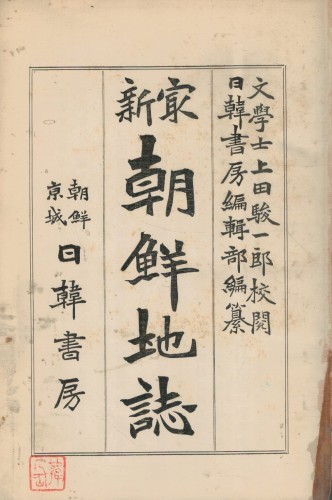 文學士上田駿一郎校閲
日韓書房編輯部編纂
㝡新
朝鮮地誌
朝鮮
京城
日韓書房